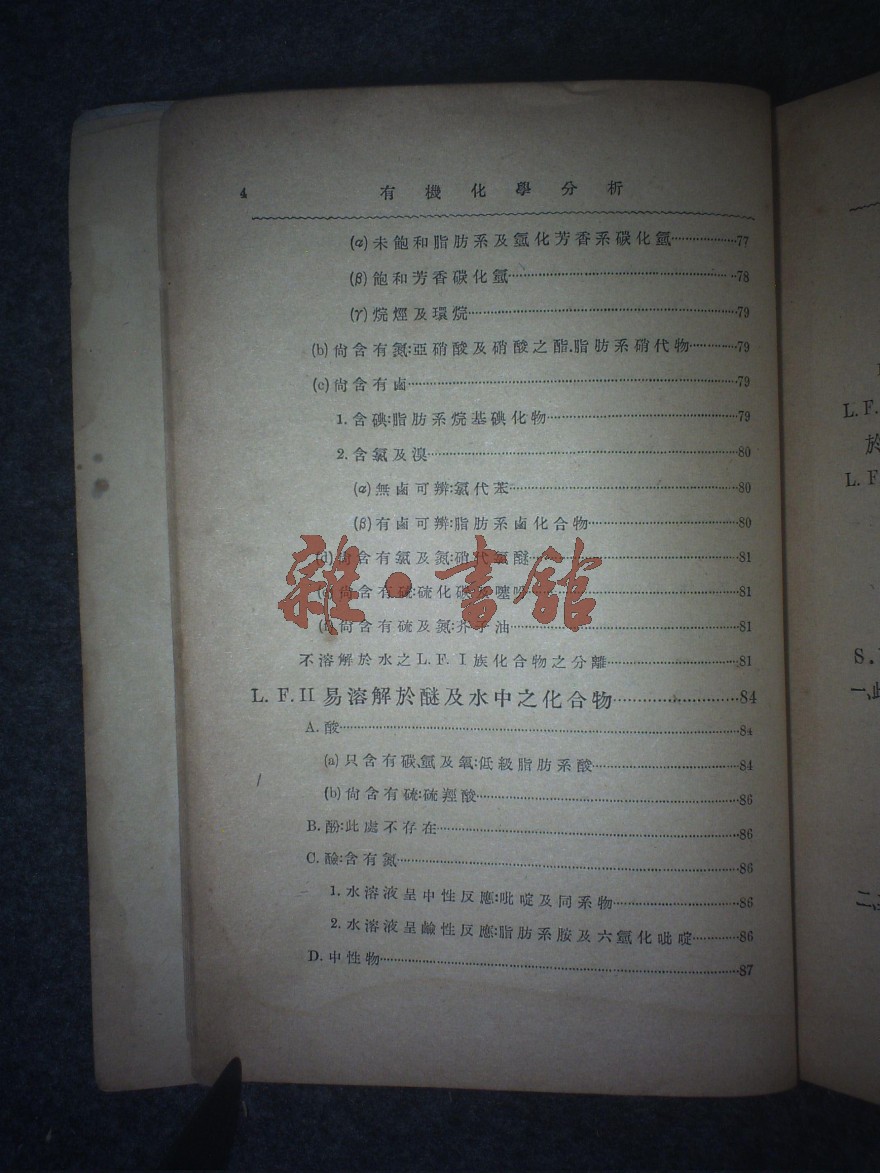 4 有機化學分析
(α)未飽和脂肪系及氫化芳香系碳化氫··················77
(β)飽和芳香碳化氫··················78
(γ)烷烴及環烷··················79
(b)尙含有氮:亞硝酸及硝酸之酯,脂肪系硝代物············79
(c)尙含有鹵··················79
1.含碘:脂肪系烷基碘化物··················79
2.含氯及溴··················80
(α)無鹵可辨:氯代苯··················80
(β)有鹵可辨:脂肪系鹵化合物··················80
(d)尙含有氯及氮:硝代氯醚··················81
(e)尙含有硫:硫化碳及噻吩··················81
(f)尙含有硫及氮:芥子油··················81
不溶解於水之L.F.I族化合物之分離··················81
L.F.II易溶解於醚及水中之化合物··················84
A.酸··················84
(a)只含有碳、氫及氧:低級脂肪系酸··················84
(b)尙含有硫:硫羥酸··················86
B.酚:此處不存在··················86
C.鹼:含有氮··················86
1.水溶液呈中性反應:吡啶及同系物··················86
2.水溶液呈鹼性反應:脂肪系胺及六氫化吡啶············86
D.中性物··················87
雜·書館
L.F.
於
L.F
S.
一、此
二、